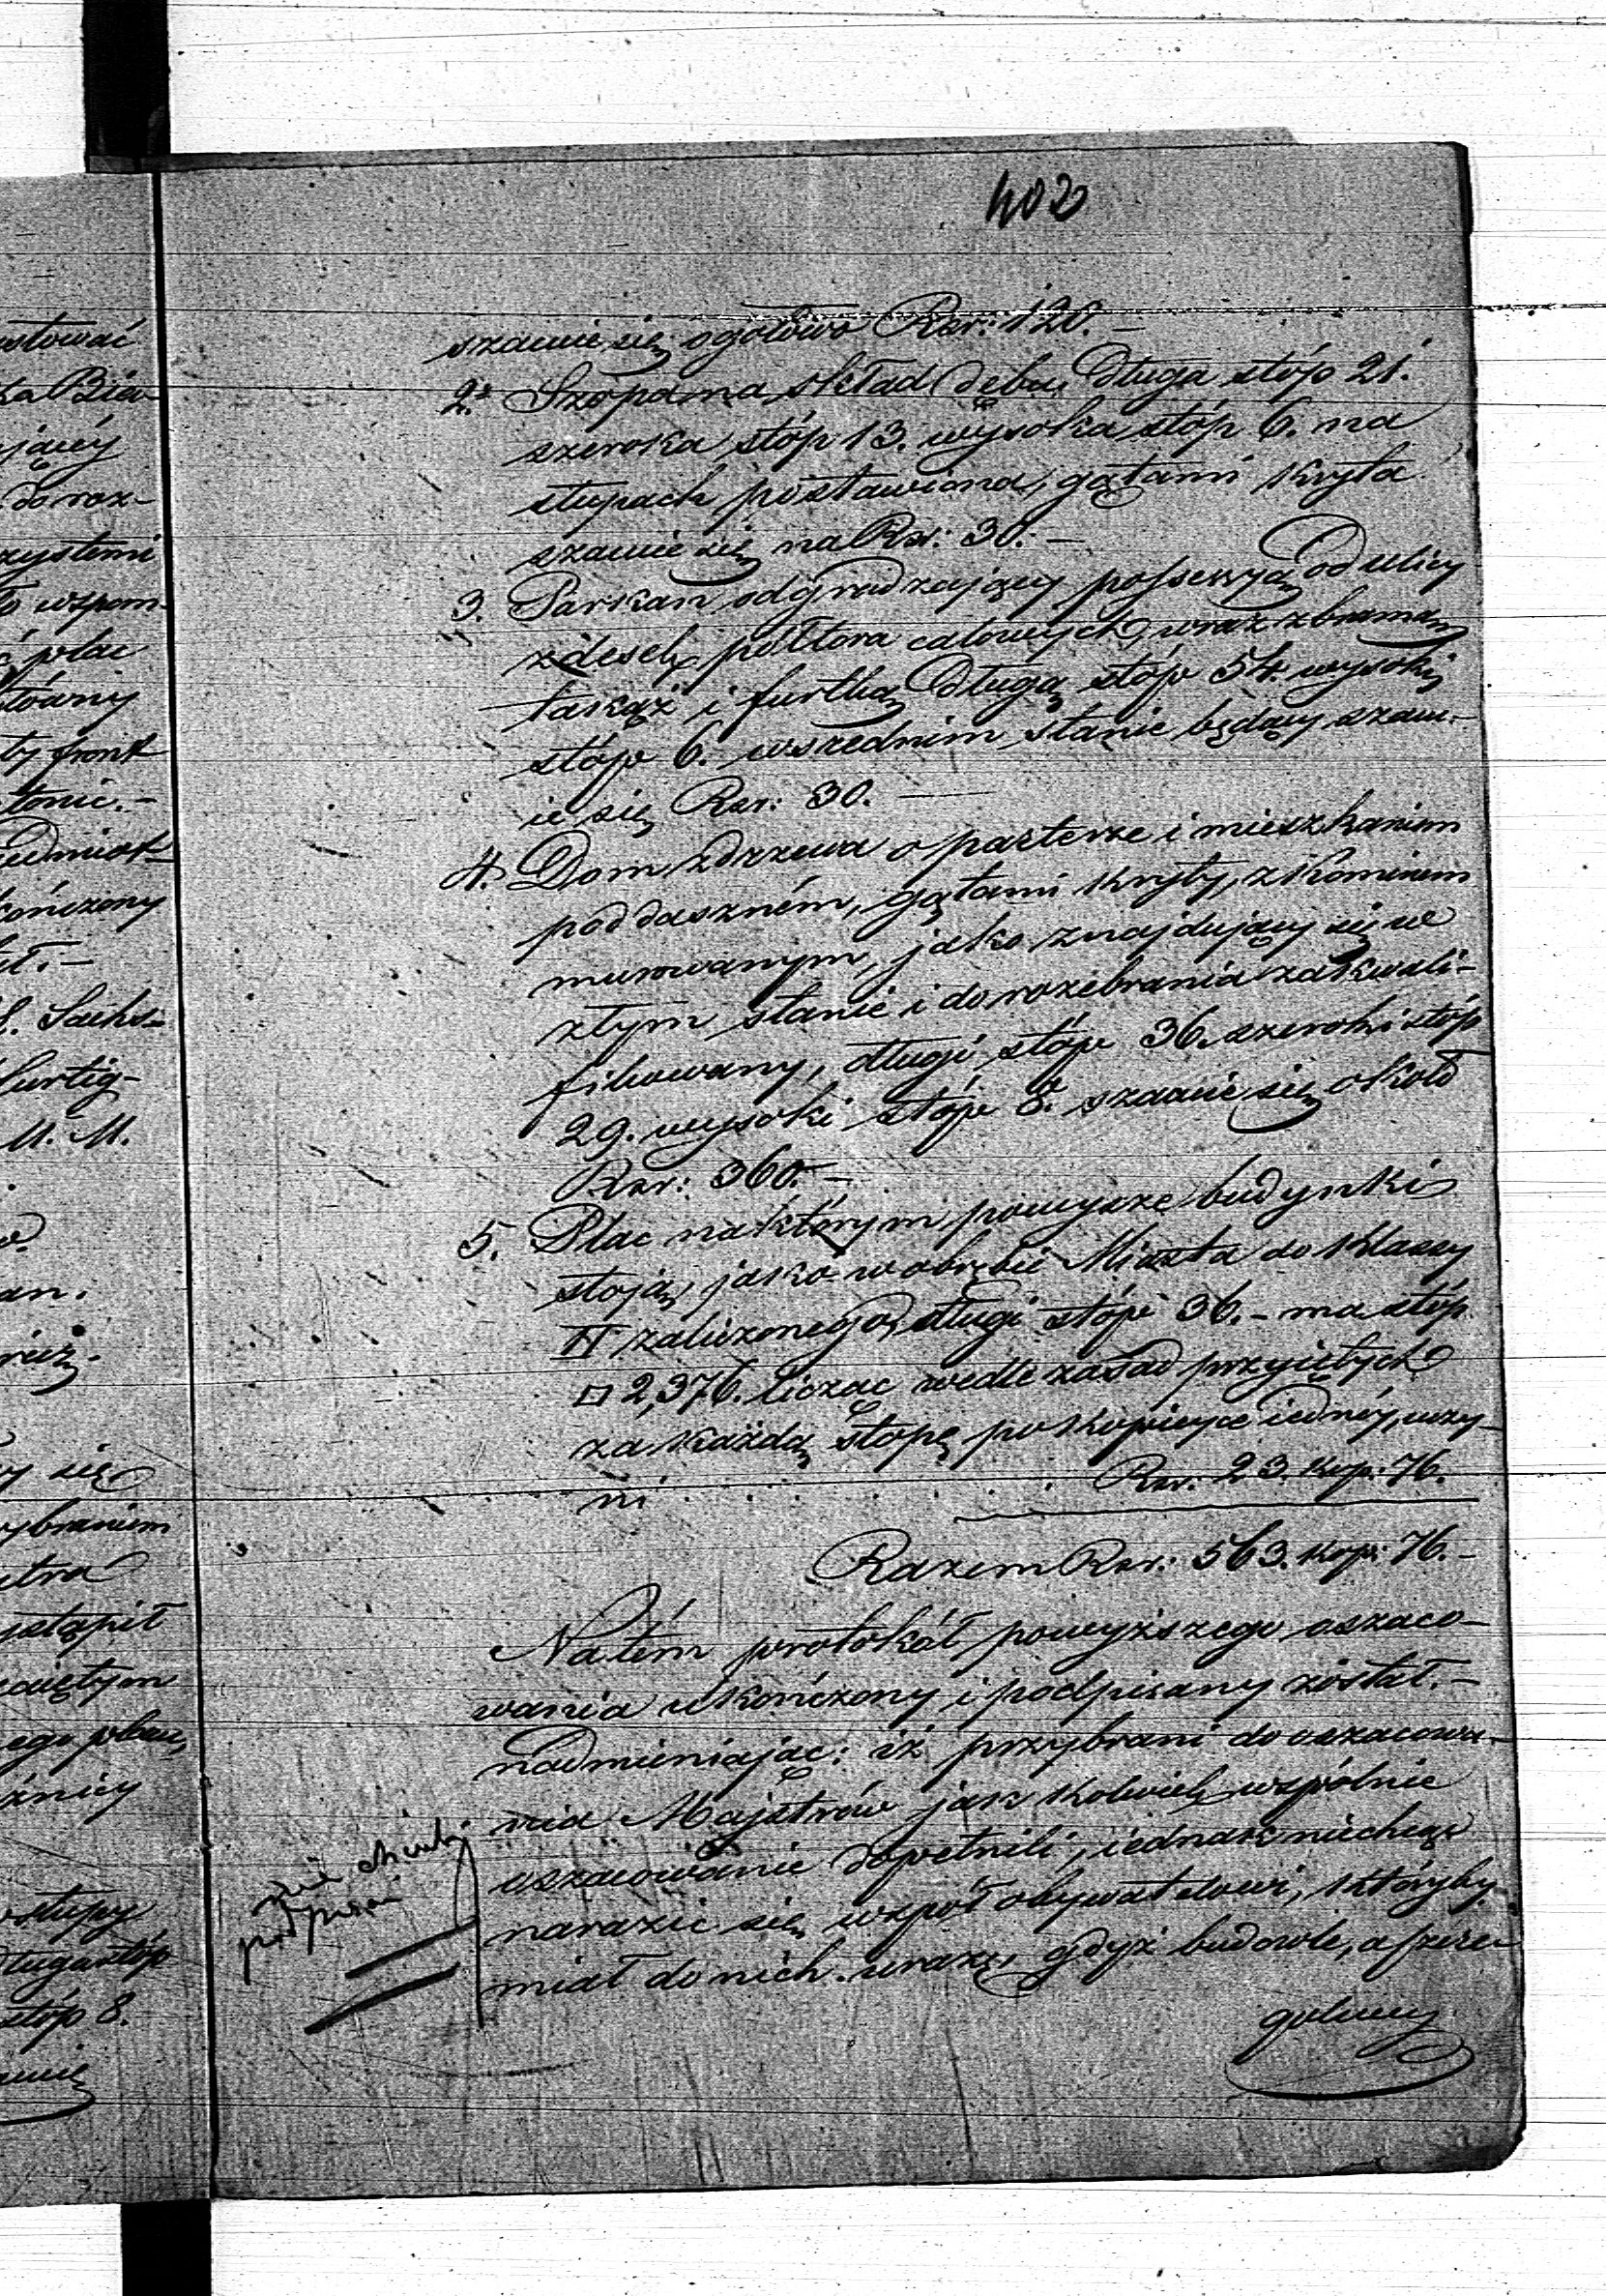 402
szacuie się ogółowo Rsr: 120.—
2. Szopa na skład dębu, długa stóp 21.
szeroka stóp 13. wysoka stóp 6. na
słupach postawiona, gątami kryta
szacuie się na Rsr: 30.—
3. Parkan odgradzaiący possessyą od ulicy
z desek półtora calowych, wraz z bramą
takąż i furtką długą stóp 54. wysoki
stóp 6. w średnim stanie będący szacu-
ie się Rsr: 30.—
4. Dom z drzewa o parterze i mieszkaniem
poddaszném, gątami kryty, z kominem
murowanym, jako znajdujący się we
złym stanie i do rozebrania zakwali-
fikowany, długi stóp 36. szeroki stóp
29. wysoki stóp 8. szacuie się około
Rsr: 360.—
5. Plac na którym powyższe budynki
stoją, jako w obrębie Miasta do klassy
II zaliczonego, długi stóp 36.— ma stóp
□ 2,376. licząc wedle zasad przyiętych
za każdą stopę po kopieyce iednéy, uczy-
ni . . . . . . Rsr. 23. kop: 76.
Razem Rsr: 563. kop: 76.—
Na tém protokół powyższego oszaco-
wania ukończony i podpisany został.—
Nadmieniając: iż przybrani do oszacowa-
nia Majstrów jak kolwiek wspólnie
oszacowanie dopełnili, iednak niechcąc
narazić się współ obywatelowi, któryby
miał do nich urazę, gdyż budowle, a szcze-
gólniey
nie chcieli
podpisać
stować
ka Bia-
jący
do roz-
zystemi
to wspom-
plac
tówny
ty front
tonie.—
kończony
ł.—
Sachs-
Hurtig-
M. M.
an.
y się
ybraniem
stąpił
ciętym
ego placu,
źnicy
słupy
długa stóp
stóp 8.
acuie